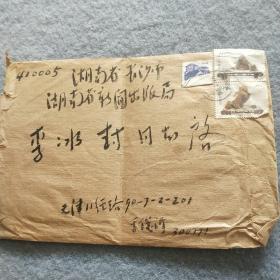 410005
湖南省长沙市
湖南省新闻出版局
李冰封同志启
天津川经路90-7-2-201
300191